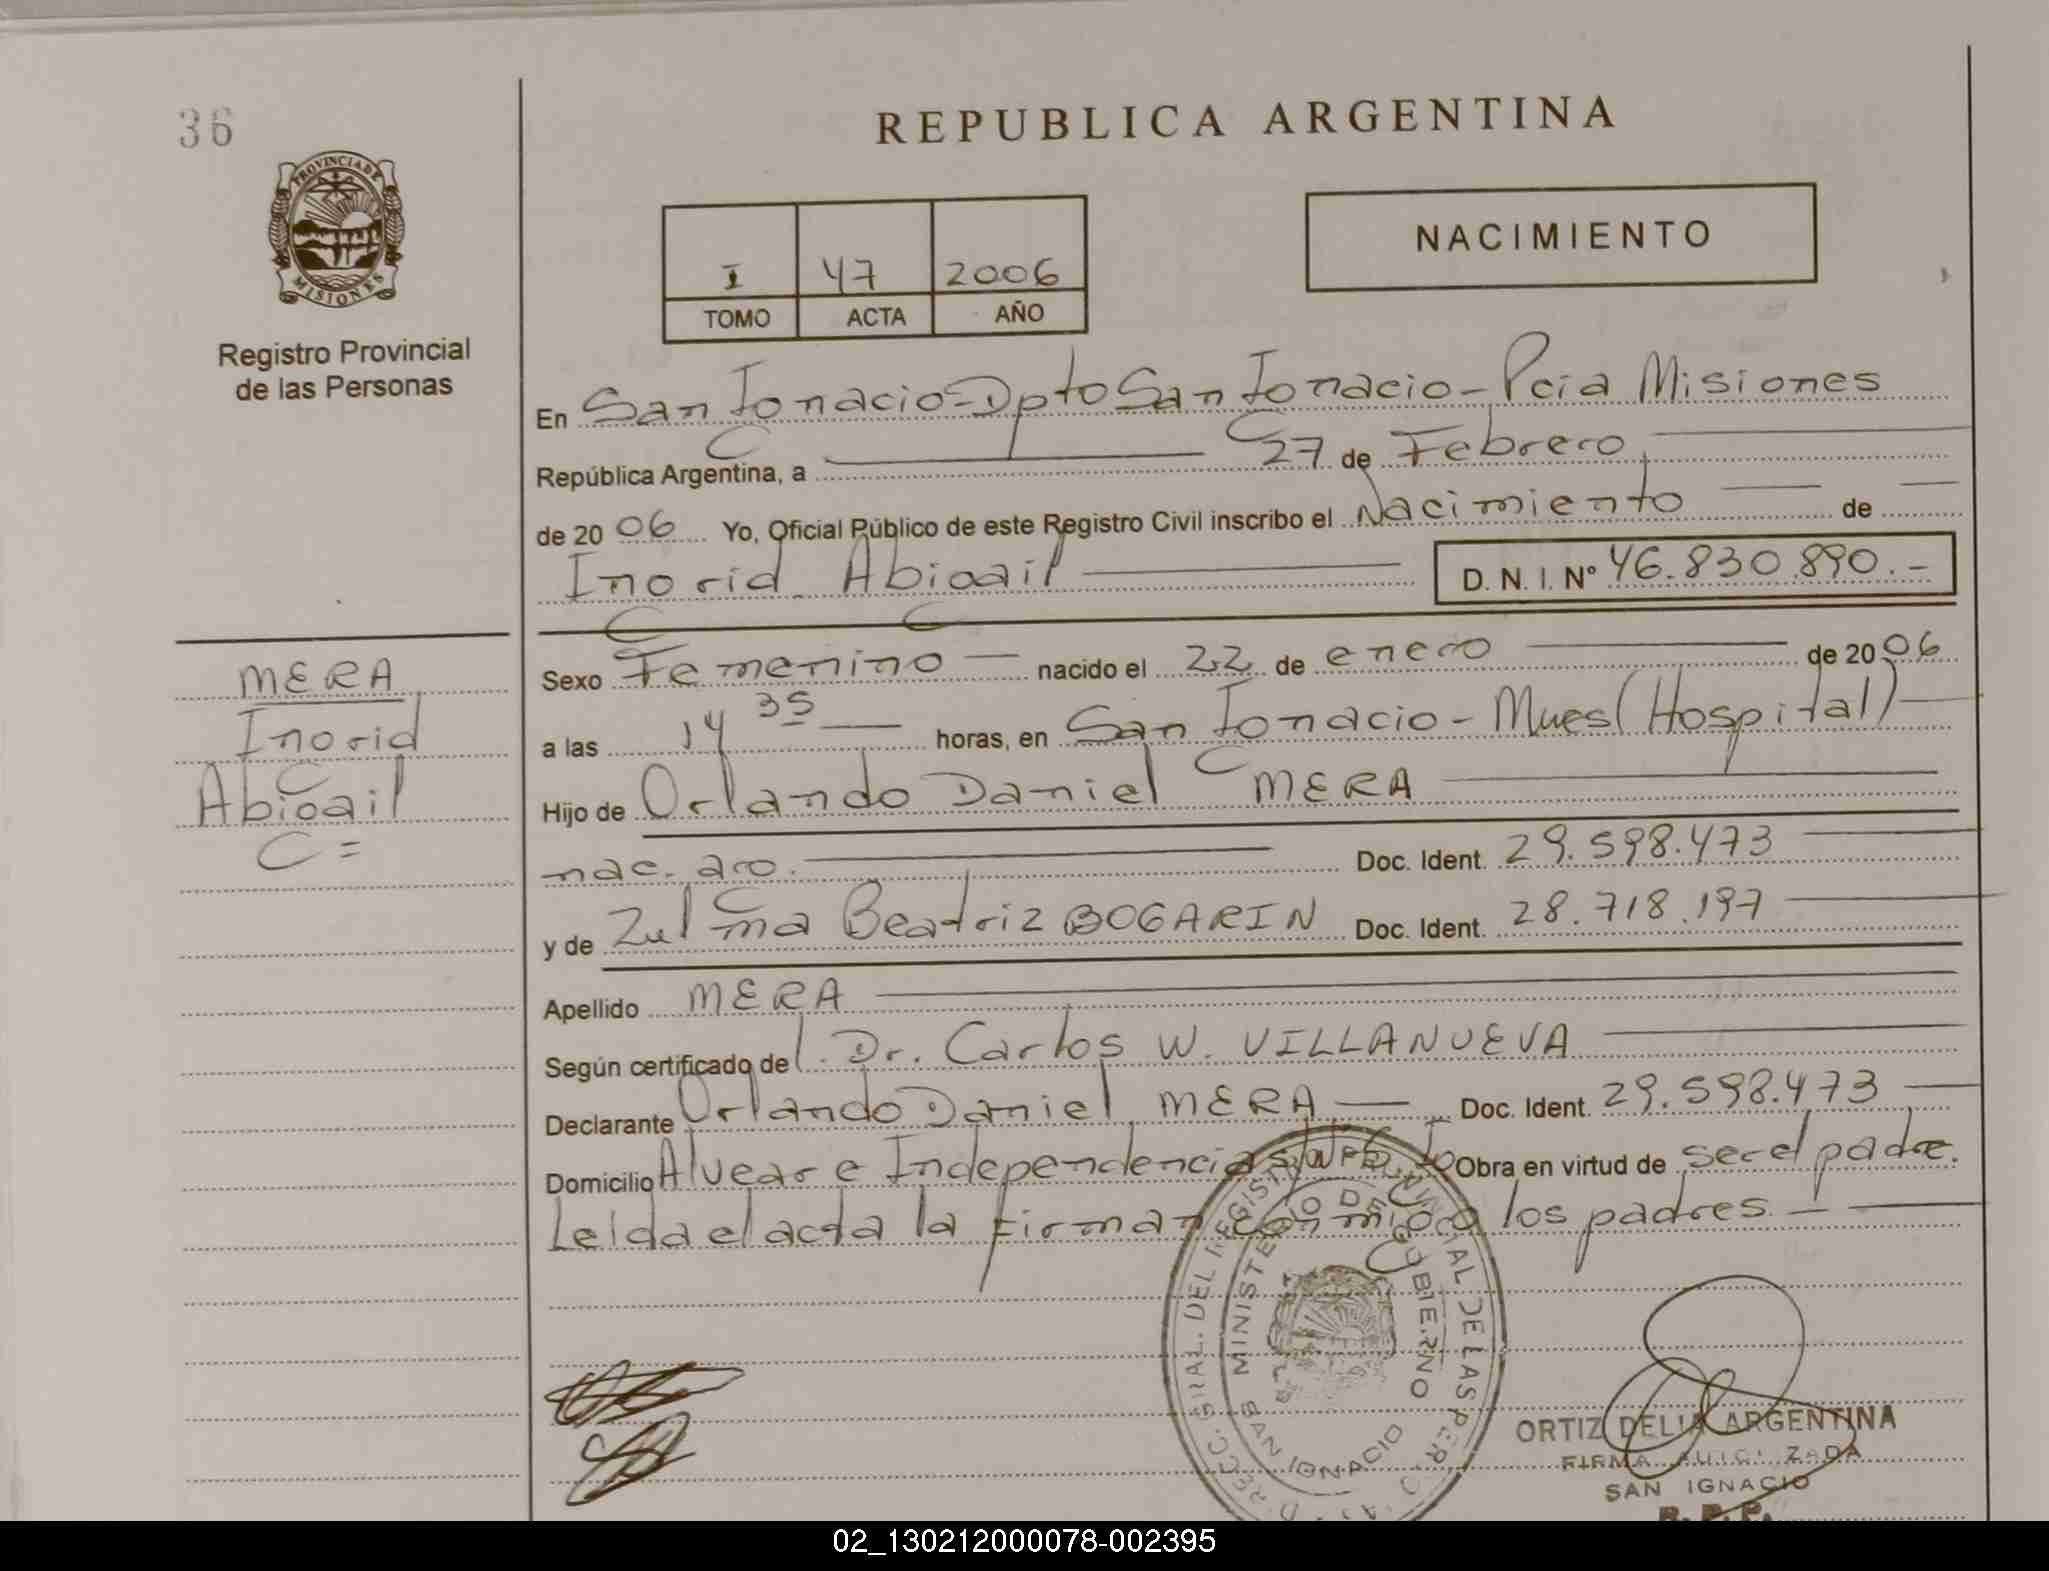 36
REPUBLICA ARGENTINA
PROVINCIA DE MISIONES
Registro Provincial
de las Personas
I 47 2006
TOMO ACTA AÑO
NACIMIENTO
En San Ignacio-Dpto San Ignacio-Pcia Misiones
República Argentina, a 27 de Febrero
de 2006 Yo, Oficial Público de este Registro Civil inscribo el Nacimiento de
Ingrid Abigail D. N. I. Nº 46.830.890.-
MERA
Ingrid
Abigail
Sexo Femenino nacido el 22 de enero de 2006
a las 14 35 horas, en San Ignacio-Mnes (Hospital)
Hijo de Orlando Daniel MERA
nac. arg. Doc. Ident. 29.598.473
y de Zulma Beatriz BOGARIN Doc. Ident. 28.718.197
Apellido MERA
Según certificado de l. Dr. Carlos W. VILLANUEVA
Declarante Orlando Daniel MERA Doc. Ident. 29.598.473
Domicilio Alvear e Independencia Obra en virtud de ser el padre.
Leida el acta la firman conmigo los padres.
MINISTERIO DE GOBIERNO
SAN IGNACIO
ORTIZ DELIA ARGENTINA
FIRMA AUTORIZADA
SAN IGNACIO
R. P. P.
02_130212000078-002395